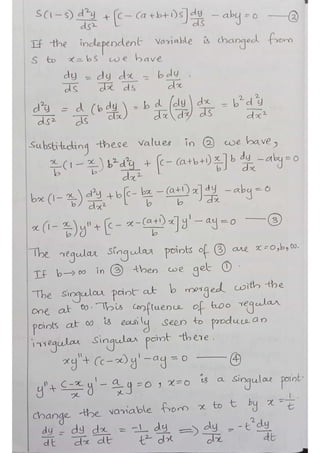 S(1-S) d²y/dS² + [C-(a+b+1)S] dy/dS - aby = 0 — ②
If the independent variable is changed from
S to x=bS we have
dy/dS = dy/dx dx/dS = b dy/dx
d²y/dS² = d/dS (b dy/dx) = b d/dx (dy/dx) dx/dS = b² d²y/dx²
Substituting these values in ② we have,
x/b (1 - x/b) b² d²y/dx² + [C - (a+b+1) x/b] b dy/dx - aby = 0
bx (1 - x/b) d²y/dx² + b [C - bx/b - (a+1)/b x] dy/dx - aby = 0
x (1 - x/b) y" + [C - x - (a+1)/b x] y' - ay = 0 — ③
The regular singular points of ③ are x=0,b,∞.
If b→∞ in ③ then we get ①.
The singular point at b merged with the
one at ∞. This confluence of two regular
points at ∞ is easily seen to produce an
irregular singular point there.
xy" + (C-x)y' - ay = 0 — ④
y" + C-x/x y' - a/x y = 0, x=0 is a singular point.
change the variable from x to t by x = 1/t
dy/dt = dy/dx dx/dt = -1/t² dy/dx ⟹ dy/dx = -t² dy/dt